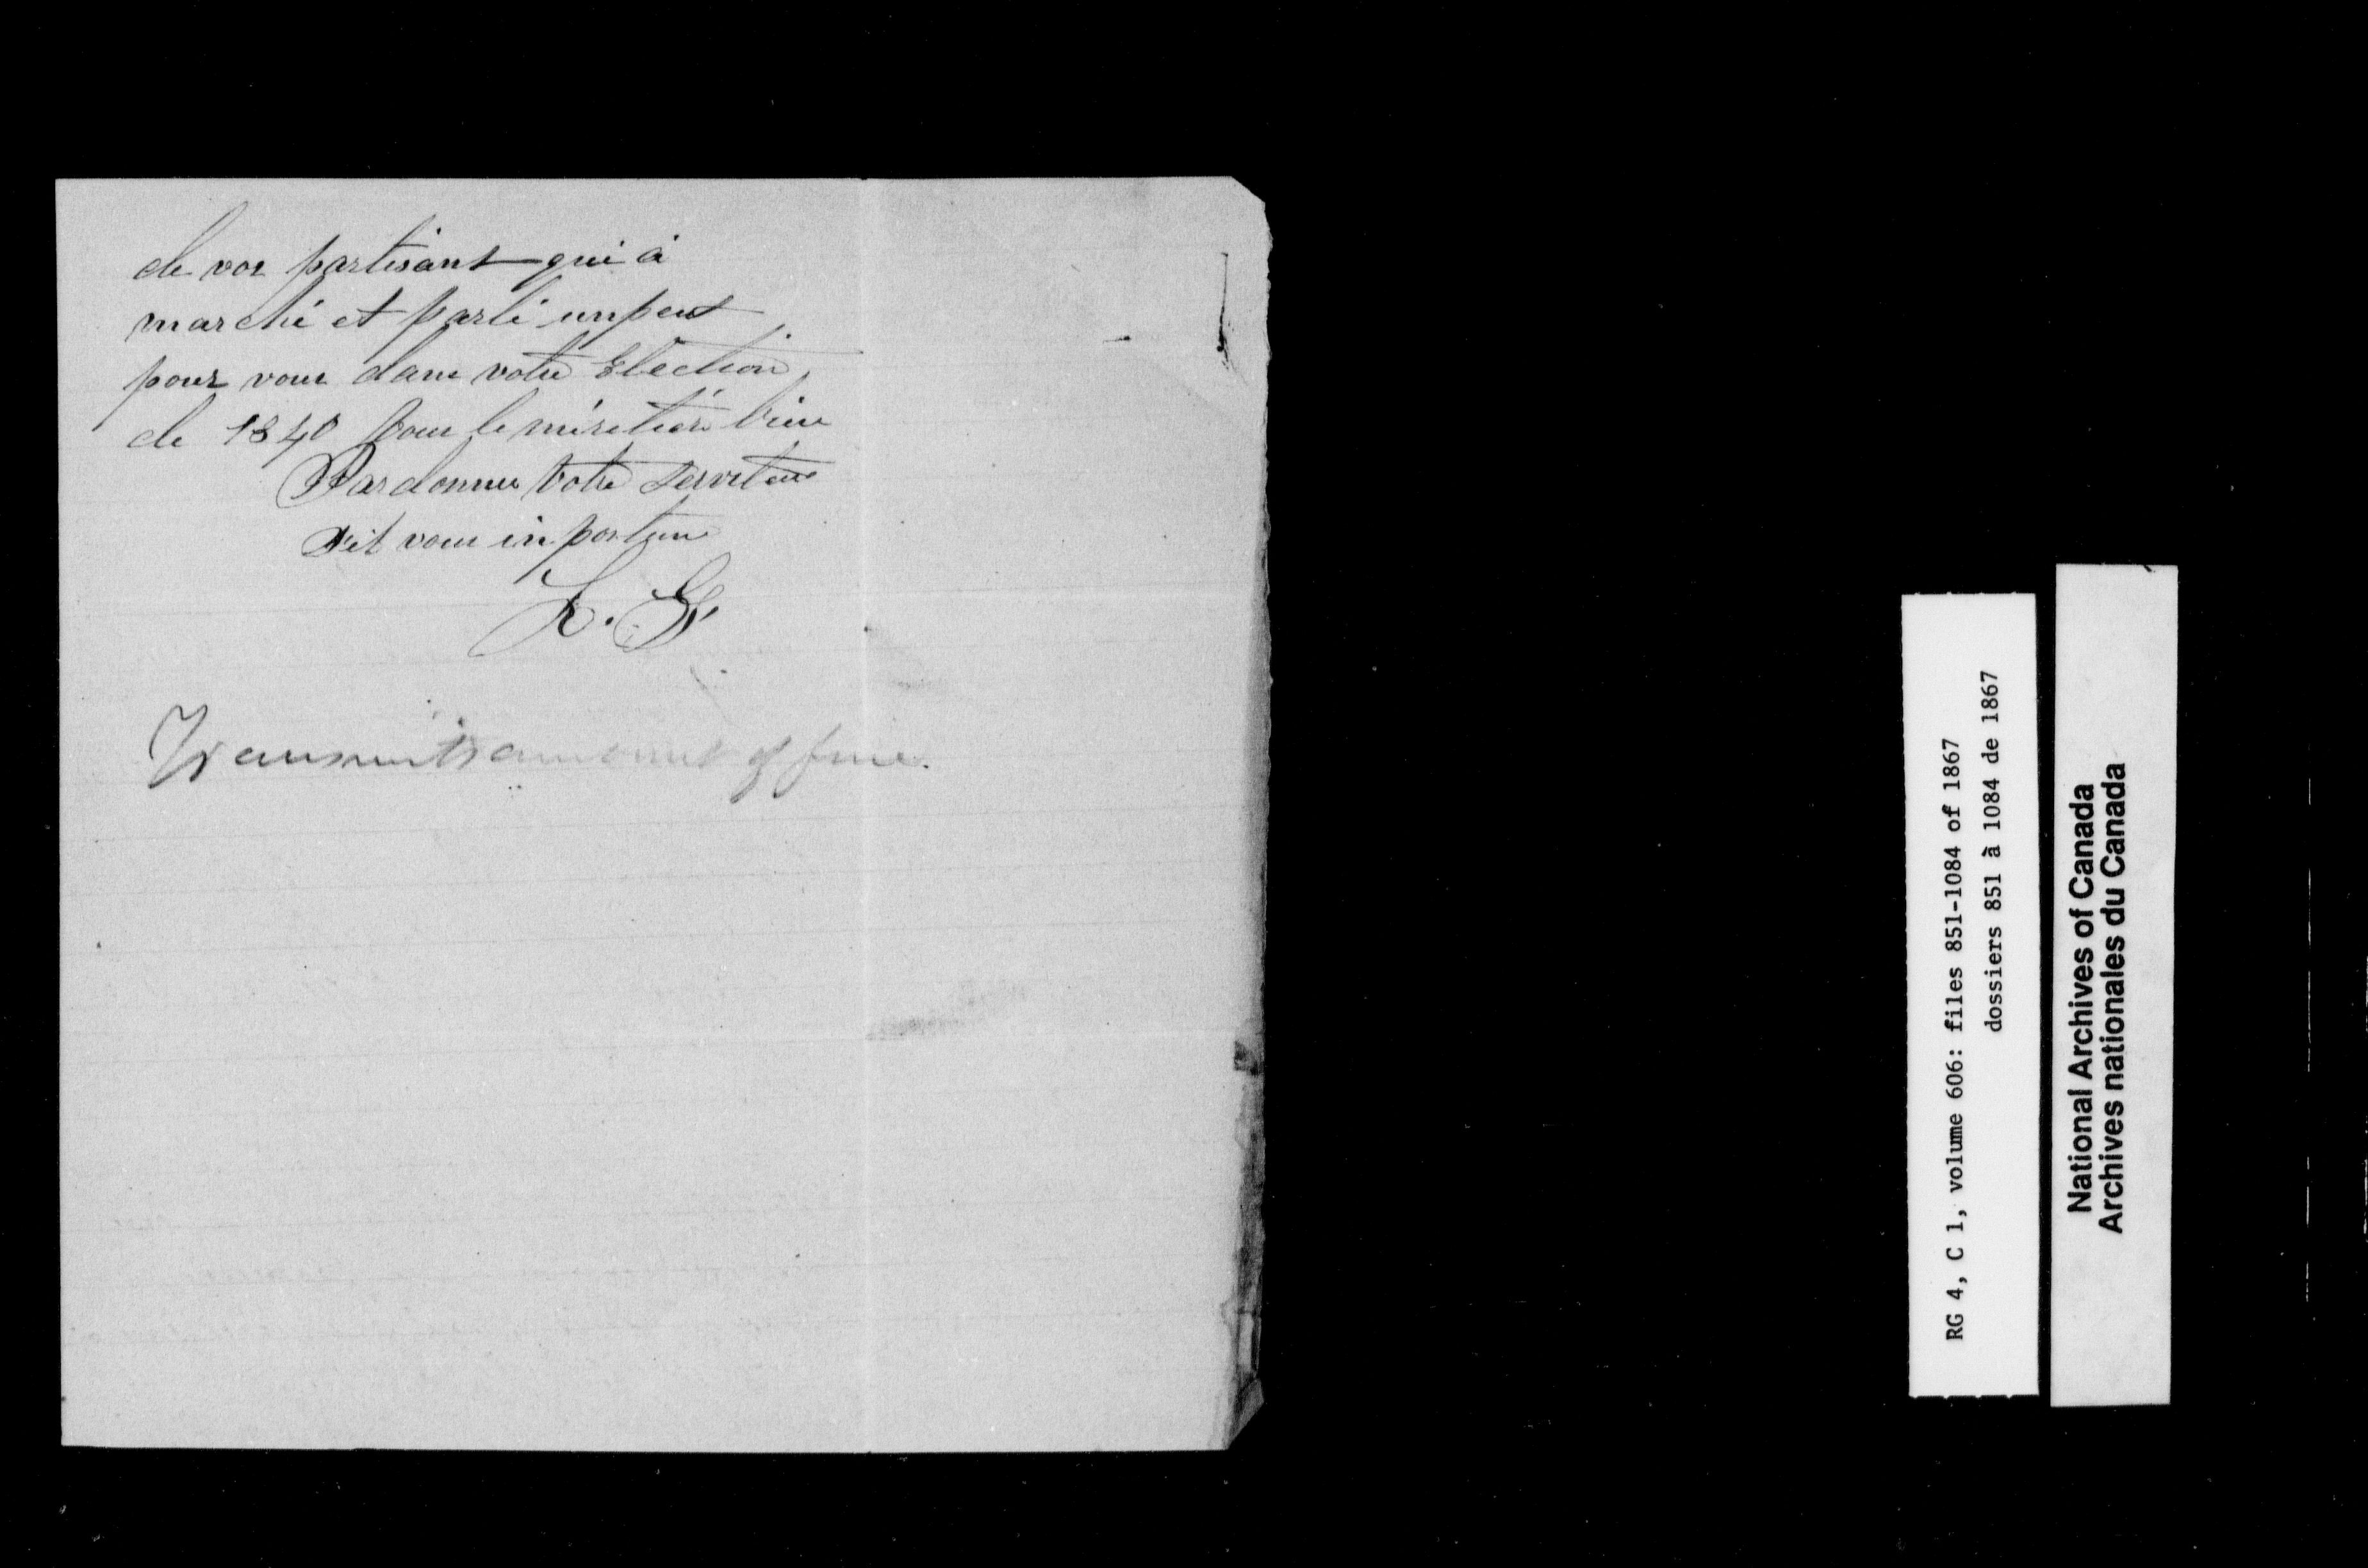 de vos partisans qui à
marché et parlé un peut
pour vous dans votre Election
de 1840 vous le méritiéz bien
Pardonnez Votre Serviteur
s'it vous inportune
L. G.
Transmits amount of fine.
RG 4, C 1, volume 606: files 851-1084 of 1867
dossiers 851 à 1084 de 1867
National Archives of Canada
Archives nationales du Canada